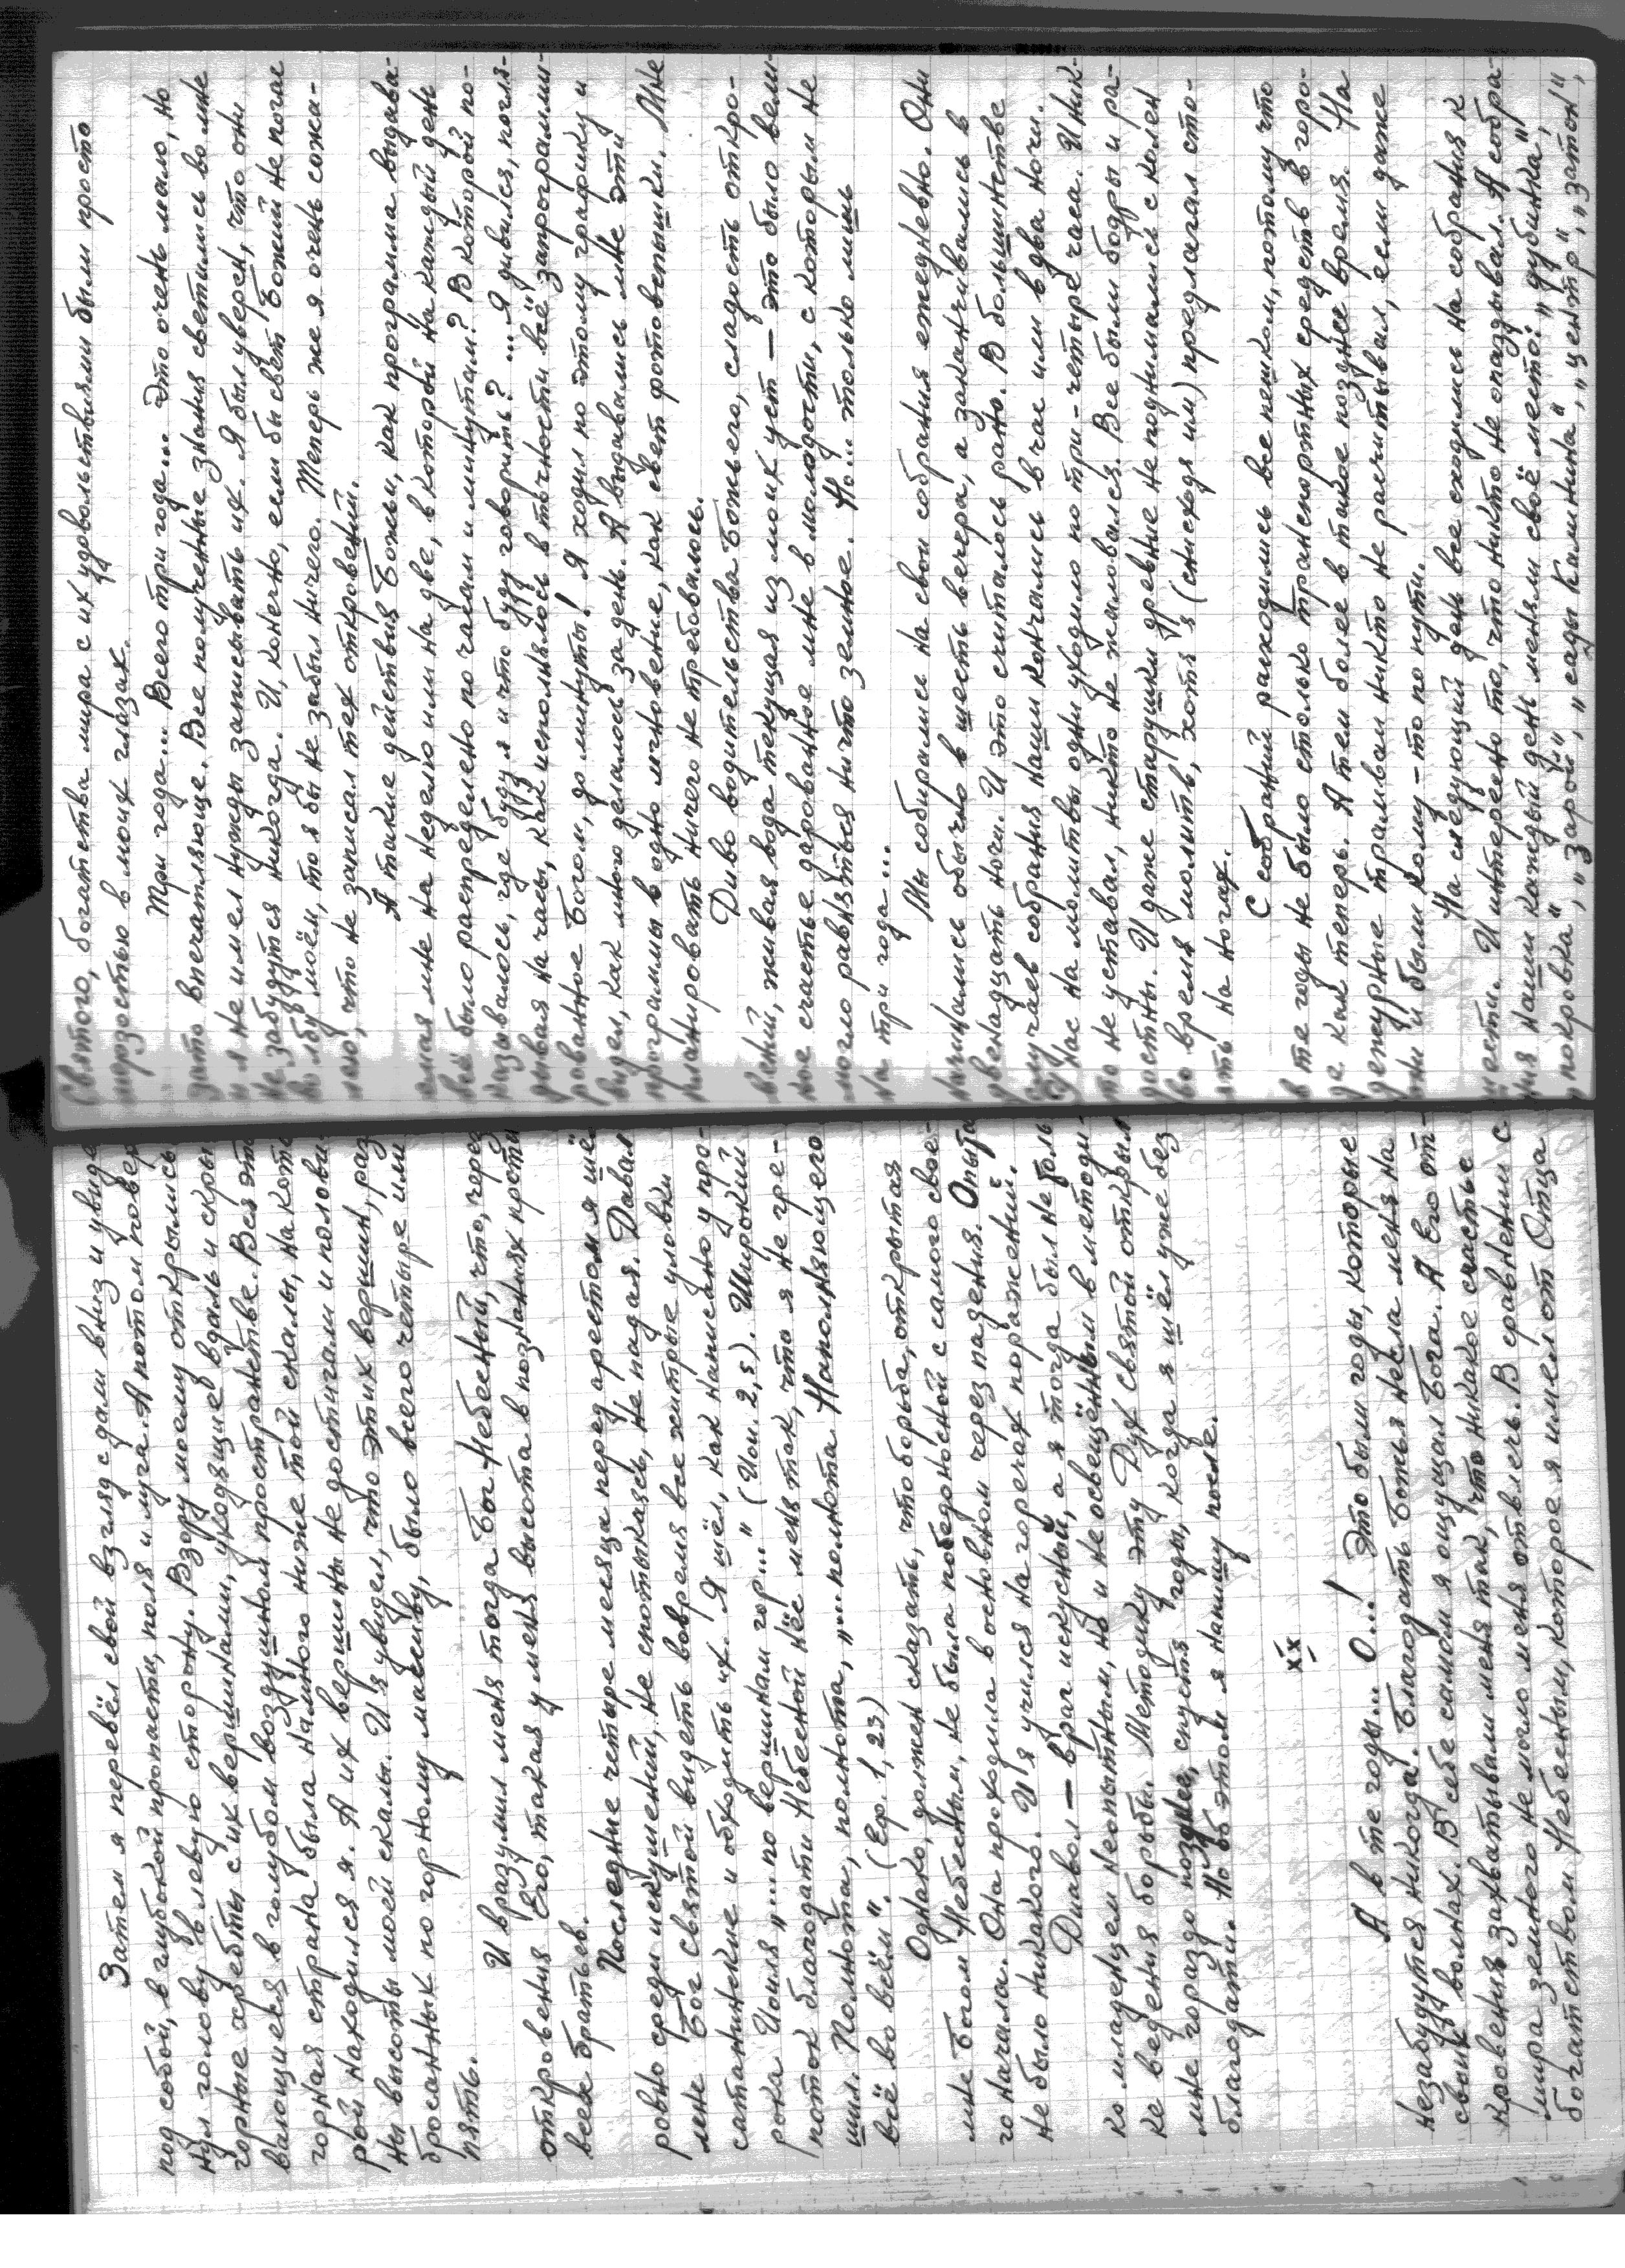 Затем я перевёл свой взгляд с дали вниз и увиде
под собой, в глубокой пропасти, поля и луга. А потом повер
нул голову в левую сторону. Взору моему открылись
горные хребты с их вершинами, уходящие вдаль и скры
вающиеся в голубом воздушном пространстве. Вся эт
горная страна была намного ниже той скалы, на кото
рой находился я. А их вершины не достигали и полови
ны высоты моей скалы. И я увидел, что этих вершин, раз
бросанных по горному массиву, было всего четыре или
пять.
И вразумил меня тогда Бог Небесный, что, через
откровения Его, такая у меня высота в познаниях проти
всех братьев.
Последние четыре месяца перед арестом я шё
ровно среди искушений, не спотыкаясь, не падая. Давал
мне Бог святой видеть вовремя все хитрые уловки
сатанинские и обходить их. Я шёл, как написано у про-
рока Иоиля „... по вершинам гор..." (Иои. 2, 5). Широкий
поток благодати Небесной нёс меня так, что я не гре-
шил. Полнота, полнота, „... полнота Наполняющего
всё во всём". (Еф. 1, 23)
Однако, должен сказать, что борьба, открытая
мне Богом Небесным, не была победоносной с самого свое-
го начала. Она проходила в основном через падения. Опыта
не было никакого. И я учился на горечах поражений.
Диавол — враг искусный, а я тогда был не боль
ко младенцем неопытным, но и не освещённым в методи-
ке ведения борьбы. Методику эту Дух святой открыл
мне гораздо позднее, спустя годы, когда я шёл уже без
благодати. Но об этом я напишу после.
хх
А в те годы... О...! Это были годы, которые
незабудутся никогда. Благодать Божья несла меня на
своих волнах. В себе самом я ощущал Бога. А Его от-
кровения захватывали меня так, что никакое счастье
мира земного не могло меня отвлечь. В сравнении с
богатством Небесным, которое я имел от Отца
святого, богатства мира с их удовольствиями были просто
мерзостью в моих глазах.
Три года... Всего три года... Это очень мало, но
зато впечатляюще. Все полученные знания светились во мне
и я не имел нужды записывать их. Я был уверен, что они
не забудутся никогда. И, конечно, если бы свет Божий не погас
во лбу моём, то я бы не забыл ничего. Теперь же я очень сожа-
лею, что не записал тех откровений.
А такие действия Божьи, как программа выдава-
емая мне на неделю или на две, в которой на каждый день
всё было распределено по часам и минутам? В которой по-
казывалось, где буду я и что буду говорить? ... Я дивился, погля-
дывая на часы, как исполнялось в точности всё запрограмми-
рованное Богом, до минуты! Я ходил по этому графику и
видел, как много делалось за день. А выдавались мне эти
программы в одно мгновение, как свет фотовспышки. Мне
планировать ничего не требовалось.
Диво водительства Божьего, сладость откро-
вений, живая вода текущая из моих уст — это было вели-
кое счастье дарованное мне в молодости, с которым не
могло равняться ничто земное. Но... только лишь
на три года...
Мы собирались на свои собрания ежедневно. Они
начинались обычно в шесть вечера, а заканчивались в
двенадцать ночи. И это считалось рано. В большинстве
случаев собрания наши кончались в час или в два ночи.
У нас на молитвы одни уходило по три-четыре часа. И ник-
то не уставал, никто не жаловался. Все были бодры и ра-
достны. И даже старушки древние не поднимались с колен
во время молитв, хотя я (снисходя им) предлагал сто-
ять на ногах.
С собраний расходились все пешком, потому что
в те годы не было столько транспортных средств в горо-
де как теперь. А тем более в такое позднее время. На
дежурные трамваи никто не расчитывал, если даже
они и были кому-то по пути.
На следующий день все сходились на собрания к
шести. И интересно то, что никто не опаздывал. А собра-
ния наши каждый день меняли своё место: „дубинка",
„покровка", „зарой", „сады Калинина", „центр", „затон",